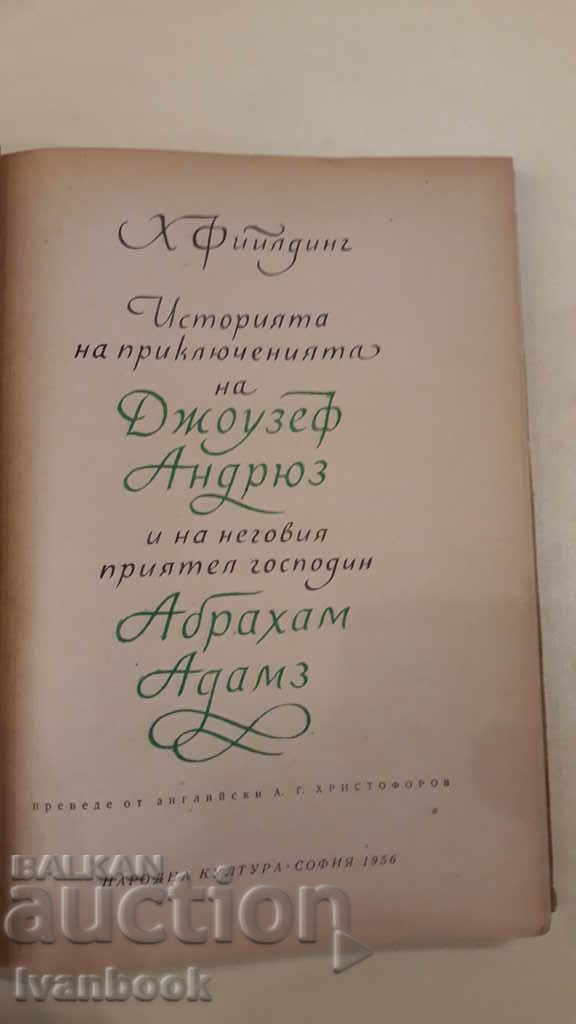 Х Фийлдинг
Историята
на приключенията
на
Джоузеф
Андрюз
и на неговия
приятел господин
Абрахам
Адамз
преведе от английски А. Г. ХРИСТОФОРОВ
НАРОДНА КУЛТУРА · СОФИЯ 1956
BALKAN
auction
Ivanbook